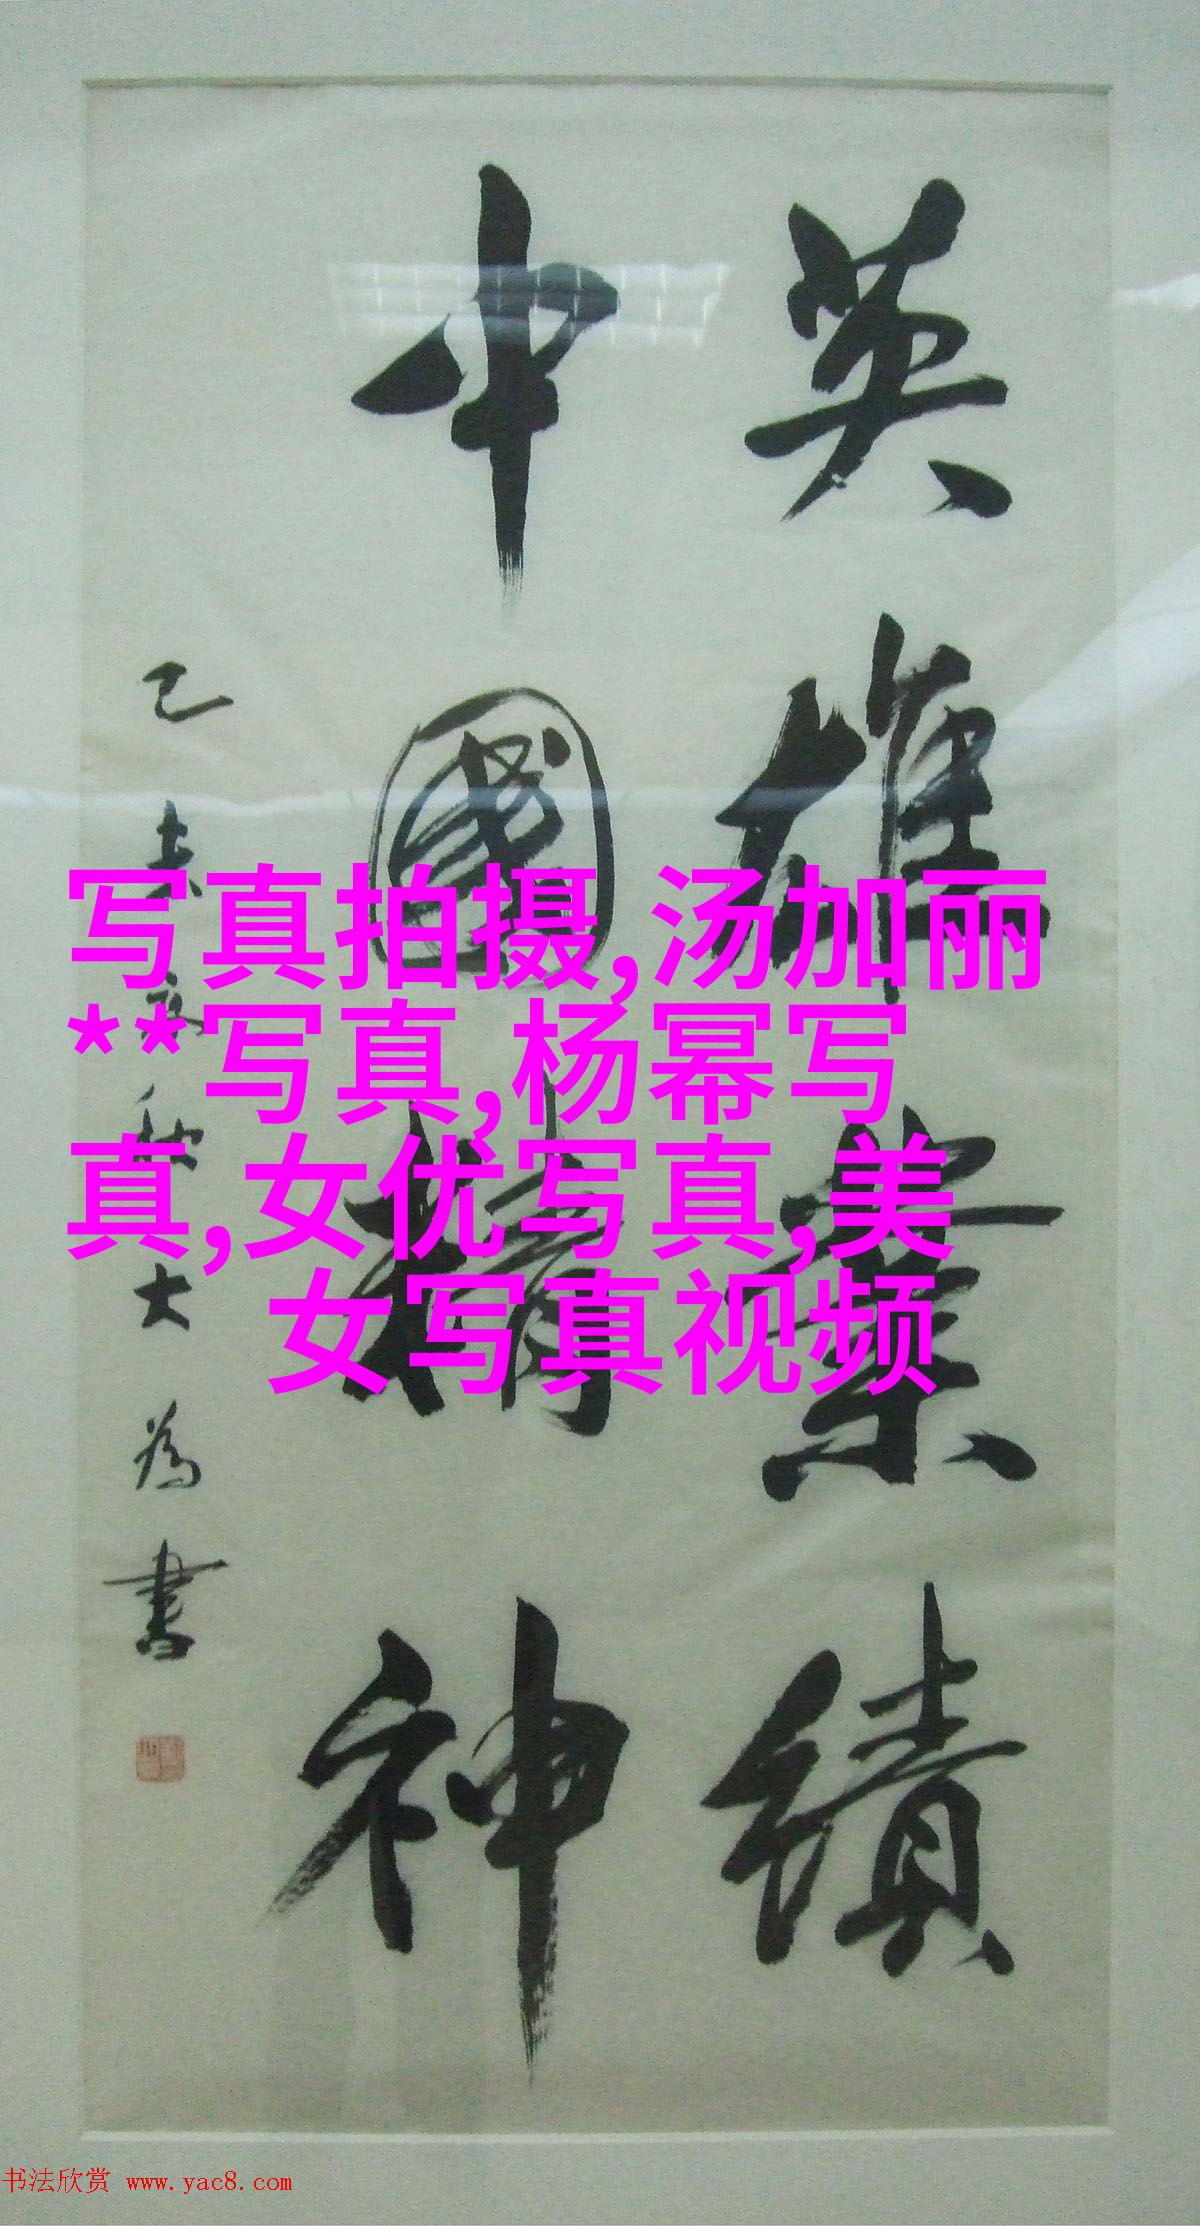 英雄業績
中國精神
乙未年秋大為書
写真拍摄,汤加丽
**写真,杨幂写
真,女优写真,美
女写真视频
书法欣赏 www.yac8.com